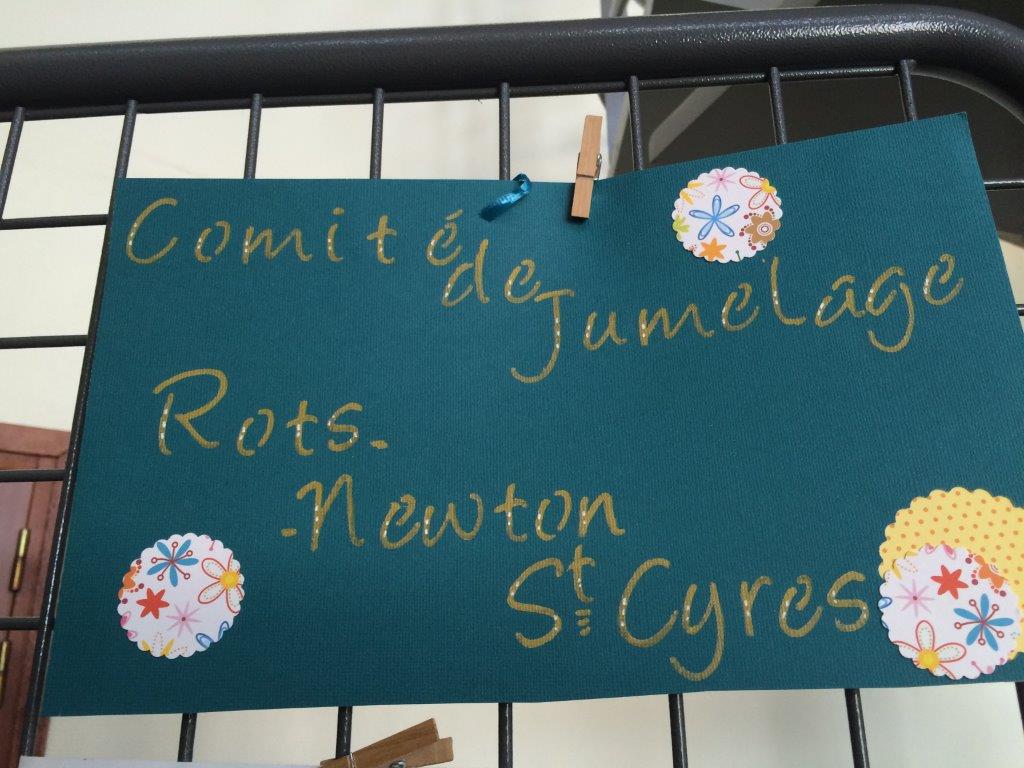 Comité
de
Jumelage
Rots.
-Newton
St Cyres